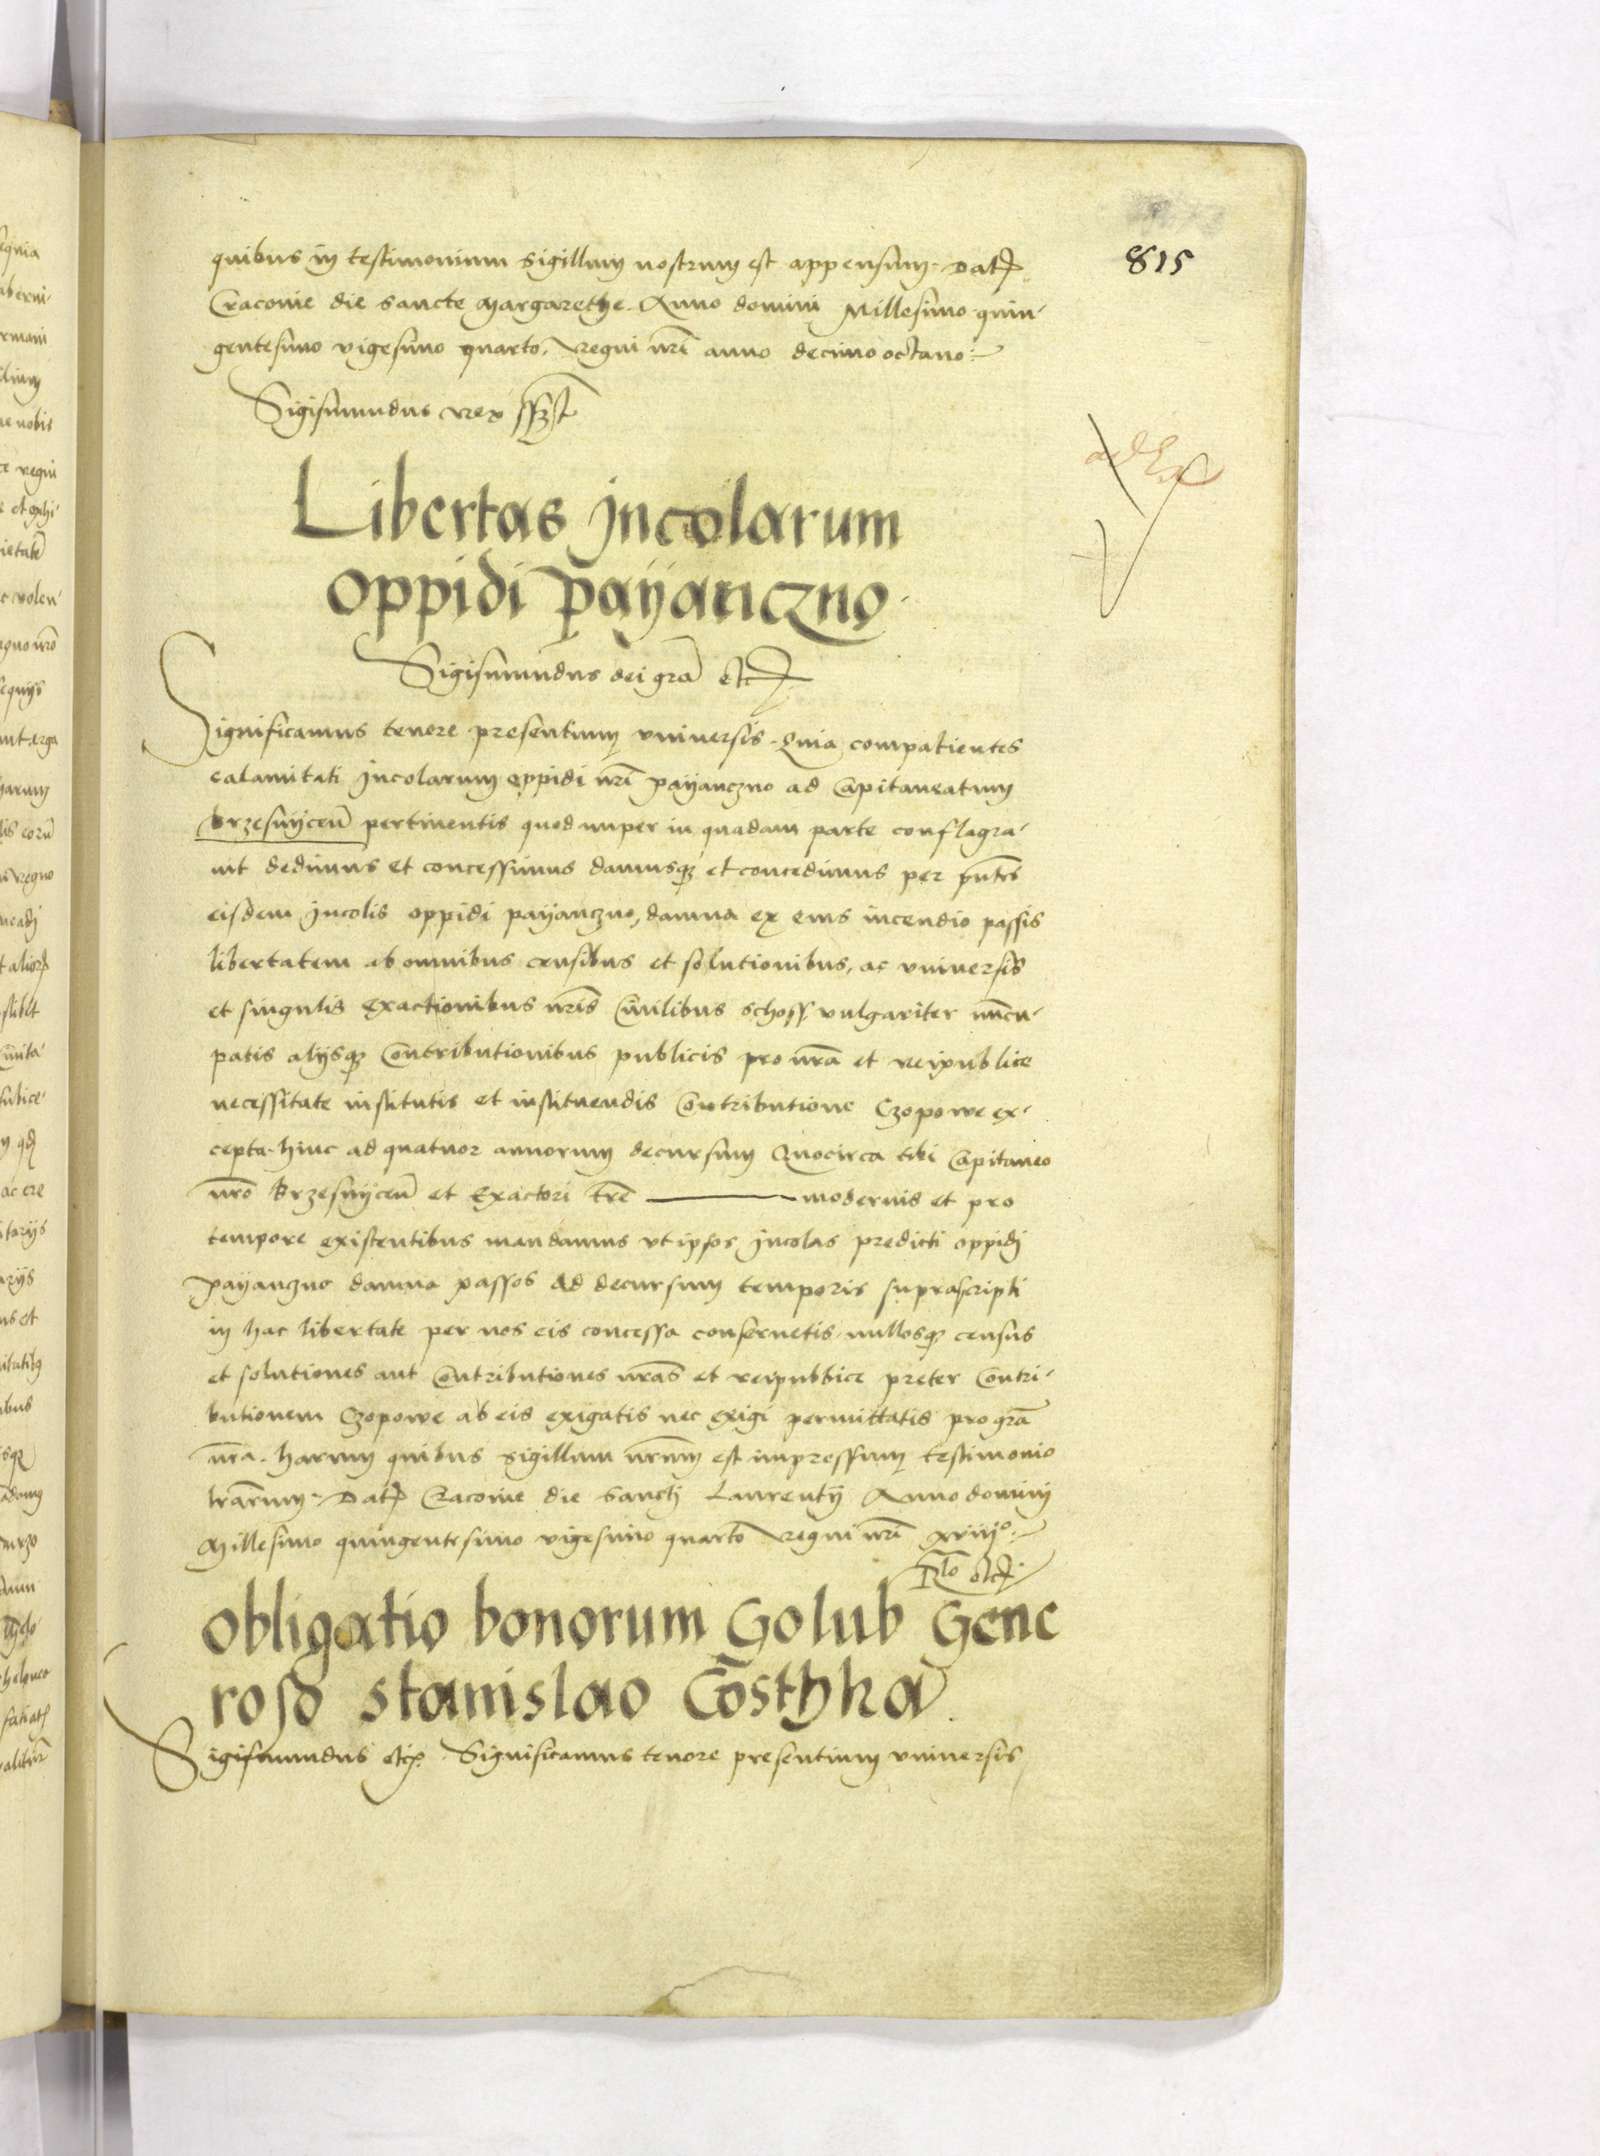 815
quibus in testimonium sigillum nostrum est appensum. Dat.
Cracovie die sancte Margarethe. Anno domini Millesimo quin-
gentesimo vigesimo quarto, regni nri anno decimo octavo.
Sigismundus rex sszt
Libertas Incolarum
oppidi Payanczno.
Sigismundus dei gra etc.
Significamus tenore presentium vniversis. Quia compatientes
calamitati Incolarum oppidi nri Payanczno ad Capitaneatum
Brzesnyceñ pertinentis quod nuper in quadam parte conflagra-
uit dedimus et concessimus damusq; et concedimus per pntes
eisdem Incolis oppidi Payanczno, damna ex eius incendio passis
libertatem ab omnibus censibus et solutionibus, ac vniversis
et singulis exactionibus nris Civilibus schoss vulgariter nuncu-
patis alijsq; Contributionibus publicis pro nra et reipublice
necessitate institutis et instituendis Contributione Czopowe ex-
cepta hinc ad quatuor annorum decursum Quocirca tibi Capitaneo
nro Brzesnyceñ et Exactori tre ——— modernis et pro
tempore existentibus mandamus vt ipsos Incolas predicti oppidi
Payanczno damna passos ad decursum temporis suprascripti
in hac libertate per nos eis concessa conseruetis nullosq; census
et solutiones aut Contributiones nras et reipublice preter Contri-
butionem Czopowe ab eis exigatis nec exigi permittatis pro gra
nra. harum quibus sigillum nrum est impressum testimonio
lrarum. Dat. Cracovie die Sancti Laurentij Anno domini
Millesimo quingentesimo vigesimo quarto regni nri xviijo.
Rlo etc.
Obligatio bonorum Golub Gene
roso Stanislao Costhka
Sigismundus etc. Significamus tenore presentium vniversis